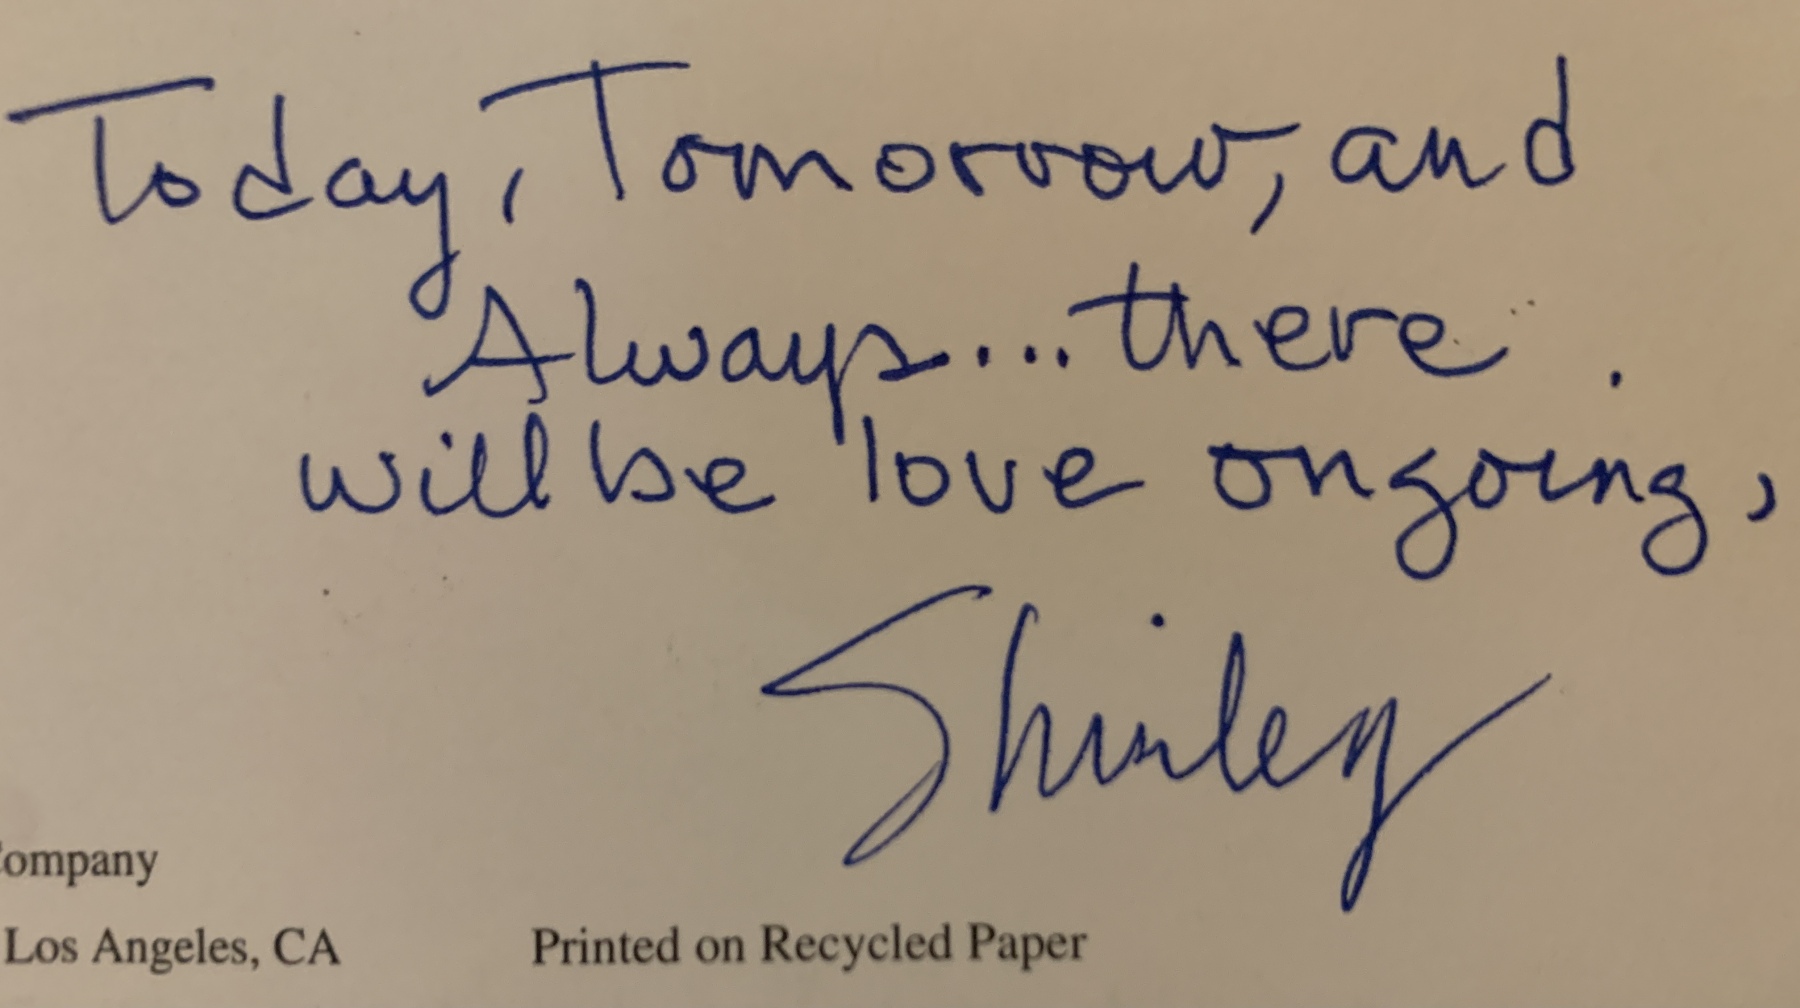 Today, Tomorrow, and
Always....there
will be love ongoing,
Shirley
Company
Los Angeles, CA
Printed on Recycled Paper